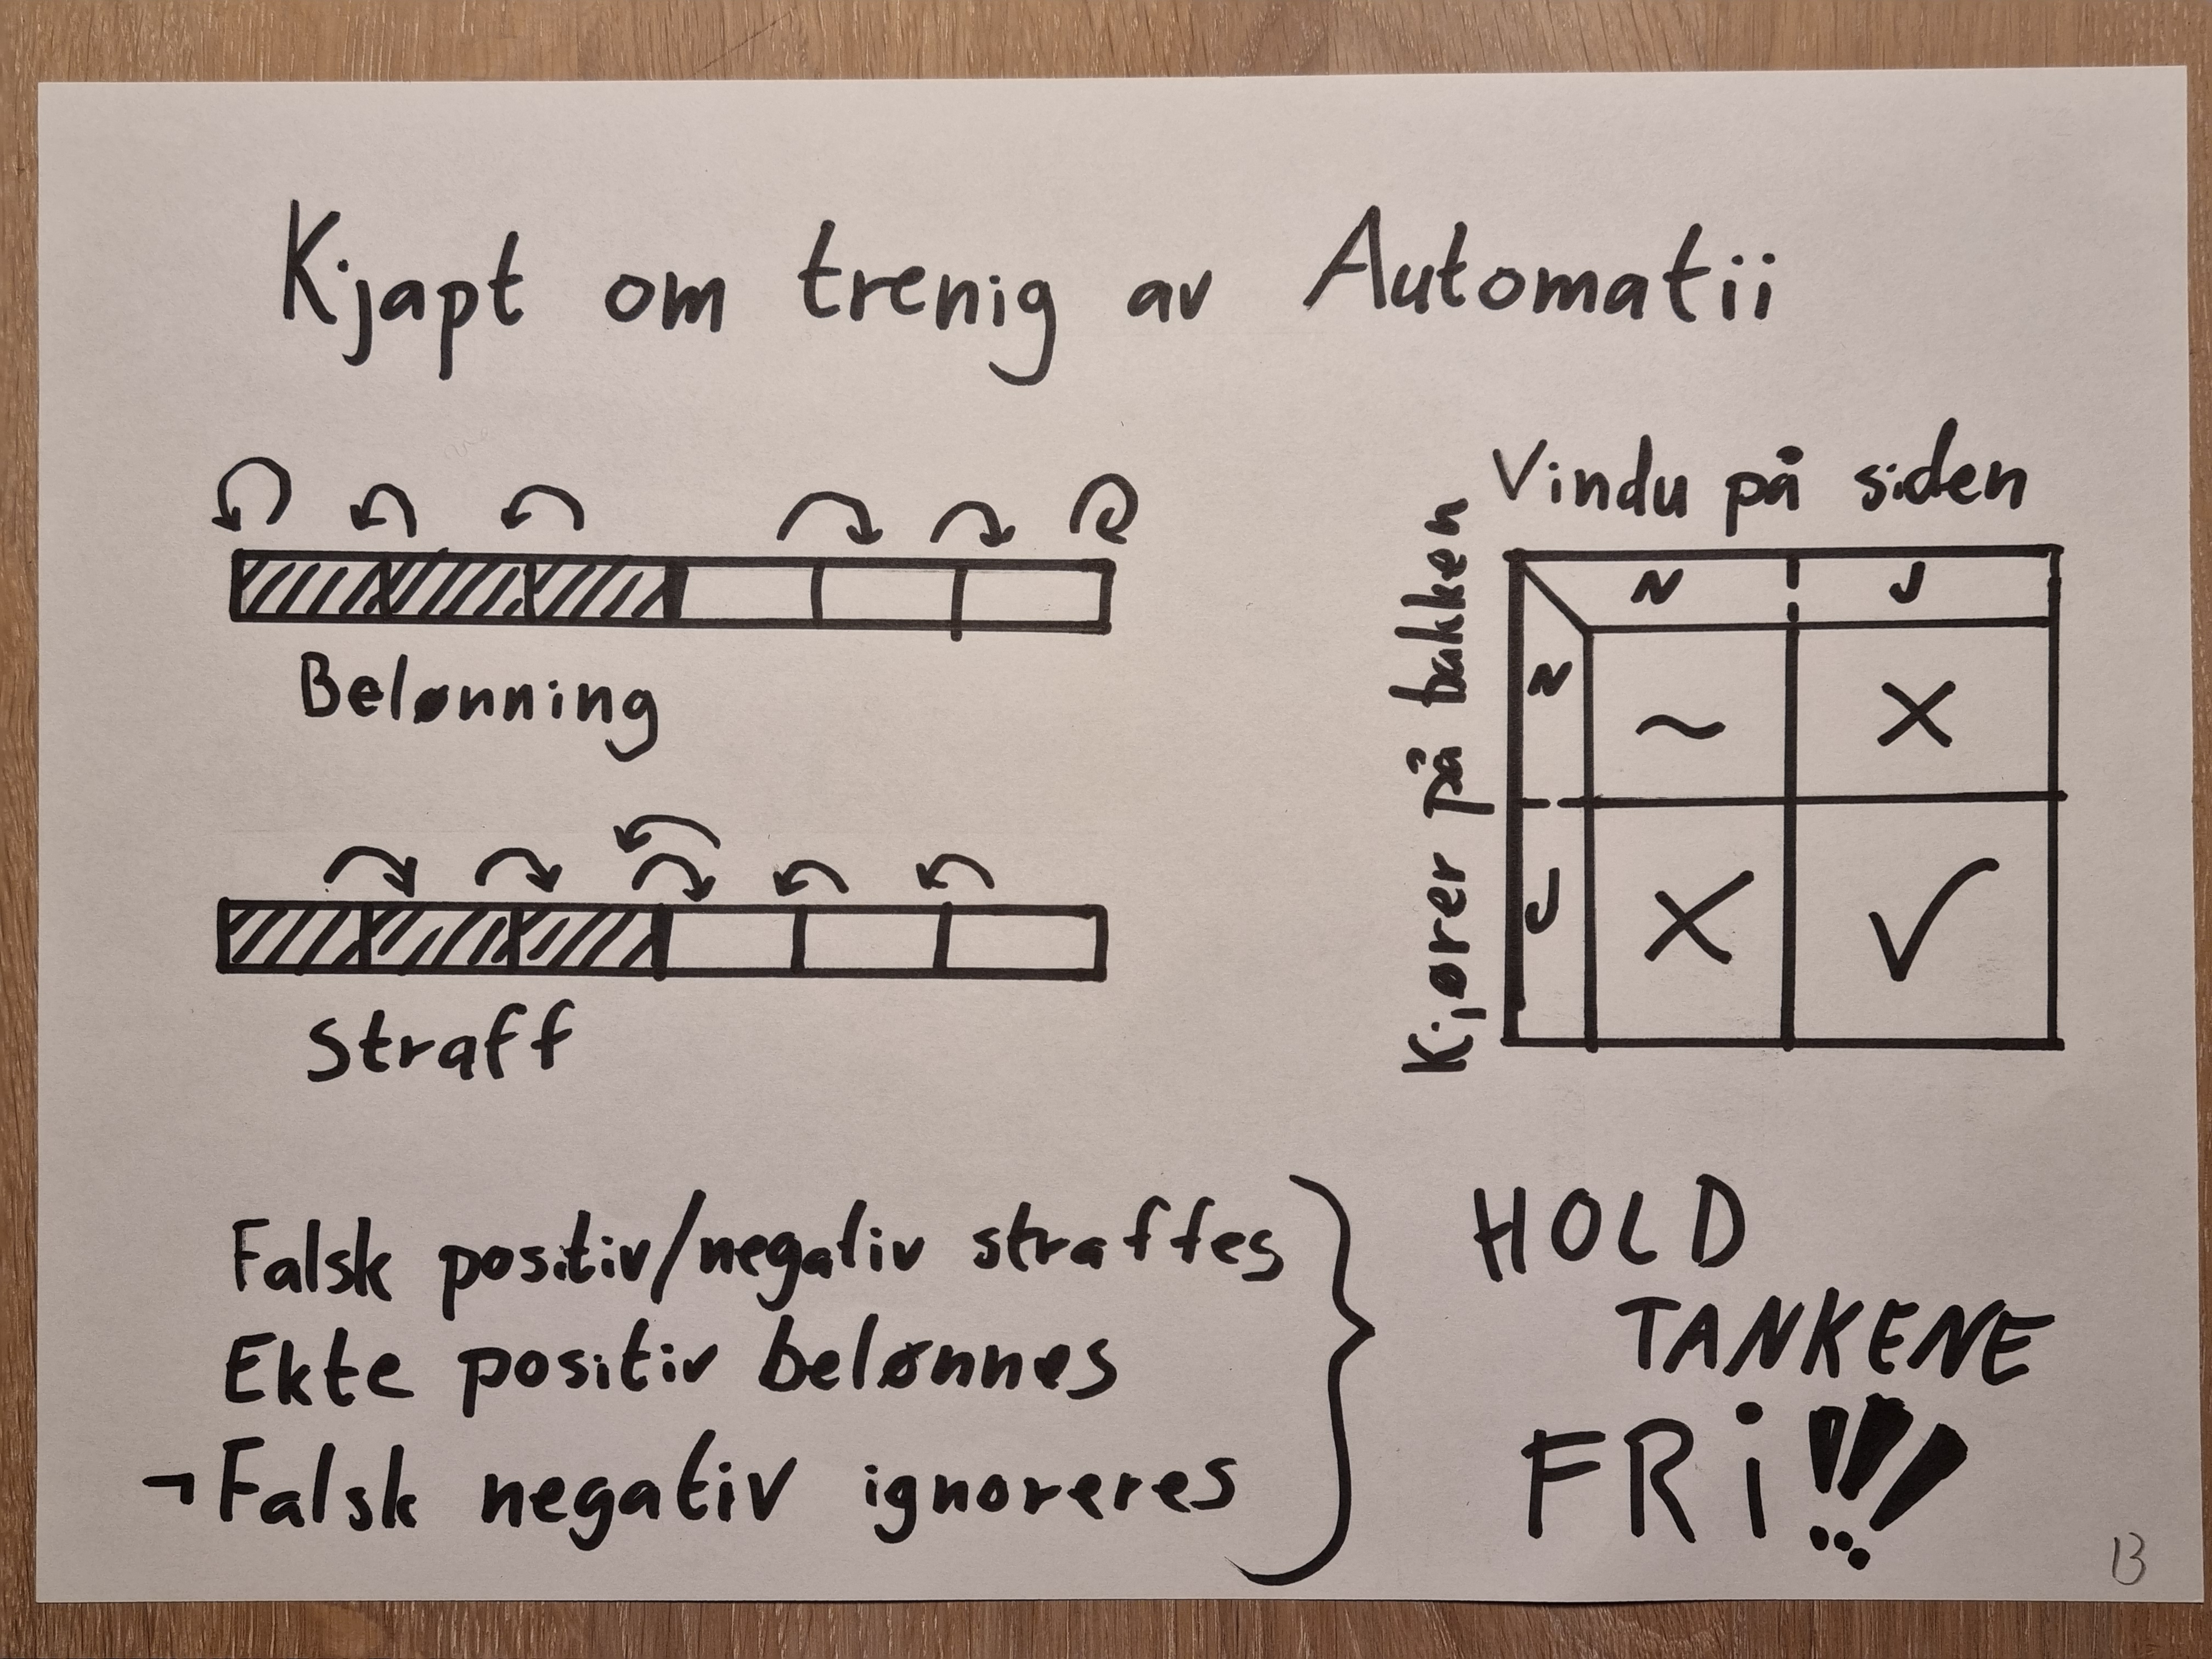 Kjapt om trenig av Automatii
Belønning
Straff
Vindu på siden
Kjører på bakken
N J
N ~ X
J X ✓
Falsk positiv/negativ straffes
Ekte positiv belønnes
¬Falsk negativ ignoreres
HOLD
TANKENE
FRi!!!
13